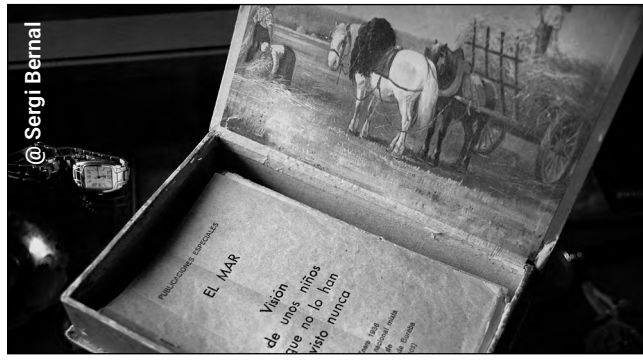 @ Sergi Bernal
PUBLICACIONES ESPECIALES
EL MAR
Visión
de unos niños
que no lo han
visto nunca
1936
mixta
de
de Bureba